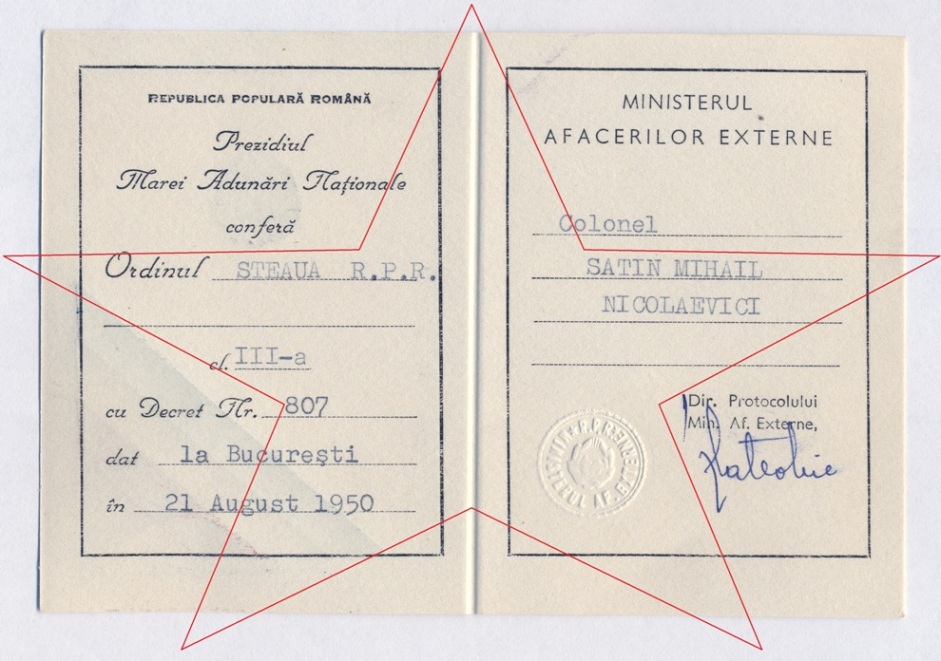 REPUBLICA POPULARĂ ROMÂNĂ
Prezidiul
Marei Adunări Naționale
conferă
Ordinul STEAUA R.P.R.
cl. III-a
cu Decret Nr. 807
dat la București
în 21 August 1950
MINISTERUL
AFACERILOR EXTERNE
Colonel
SATIN MIHAIL
NICOLAEVICI
Dir. Protocolului
Min. Af. Externe,